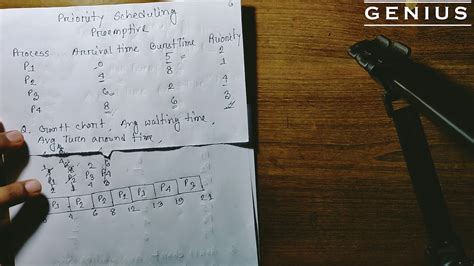 GENIUS
Priority Scheduling
Preemptive
Process Arrival time Burst Time Priority
P1 0 5 2
P2 4 8 1
P3 6 2 4
P4 8 6 3
Q. Grantt chart, Avg waiting time,
Avg Turn around time,
P1 P2 P3 P4
P1 P2 P2 P2 P1 P4 P3
4 6 8 12 13 19 21